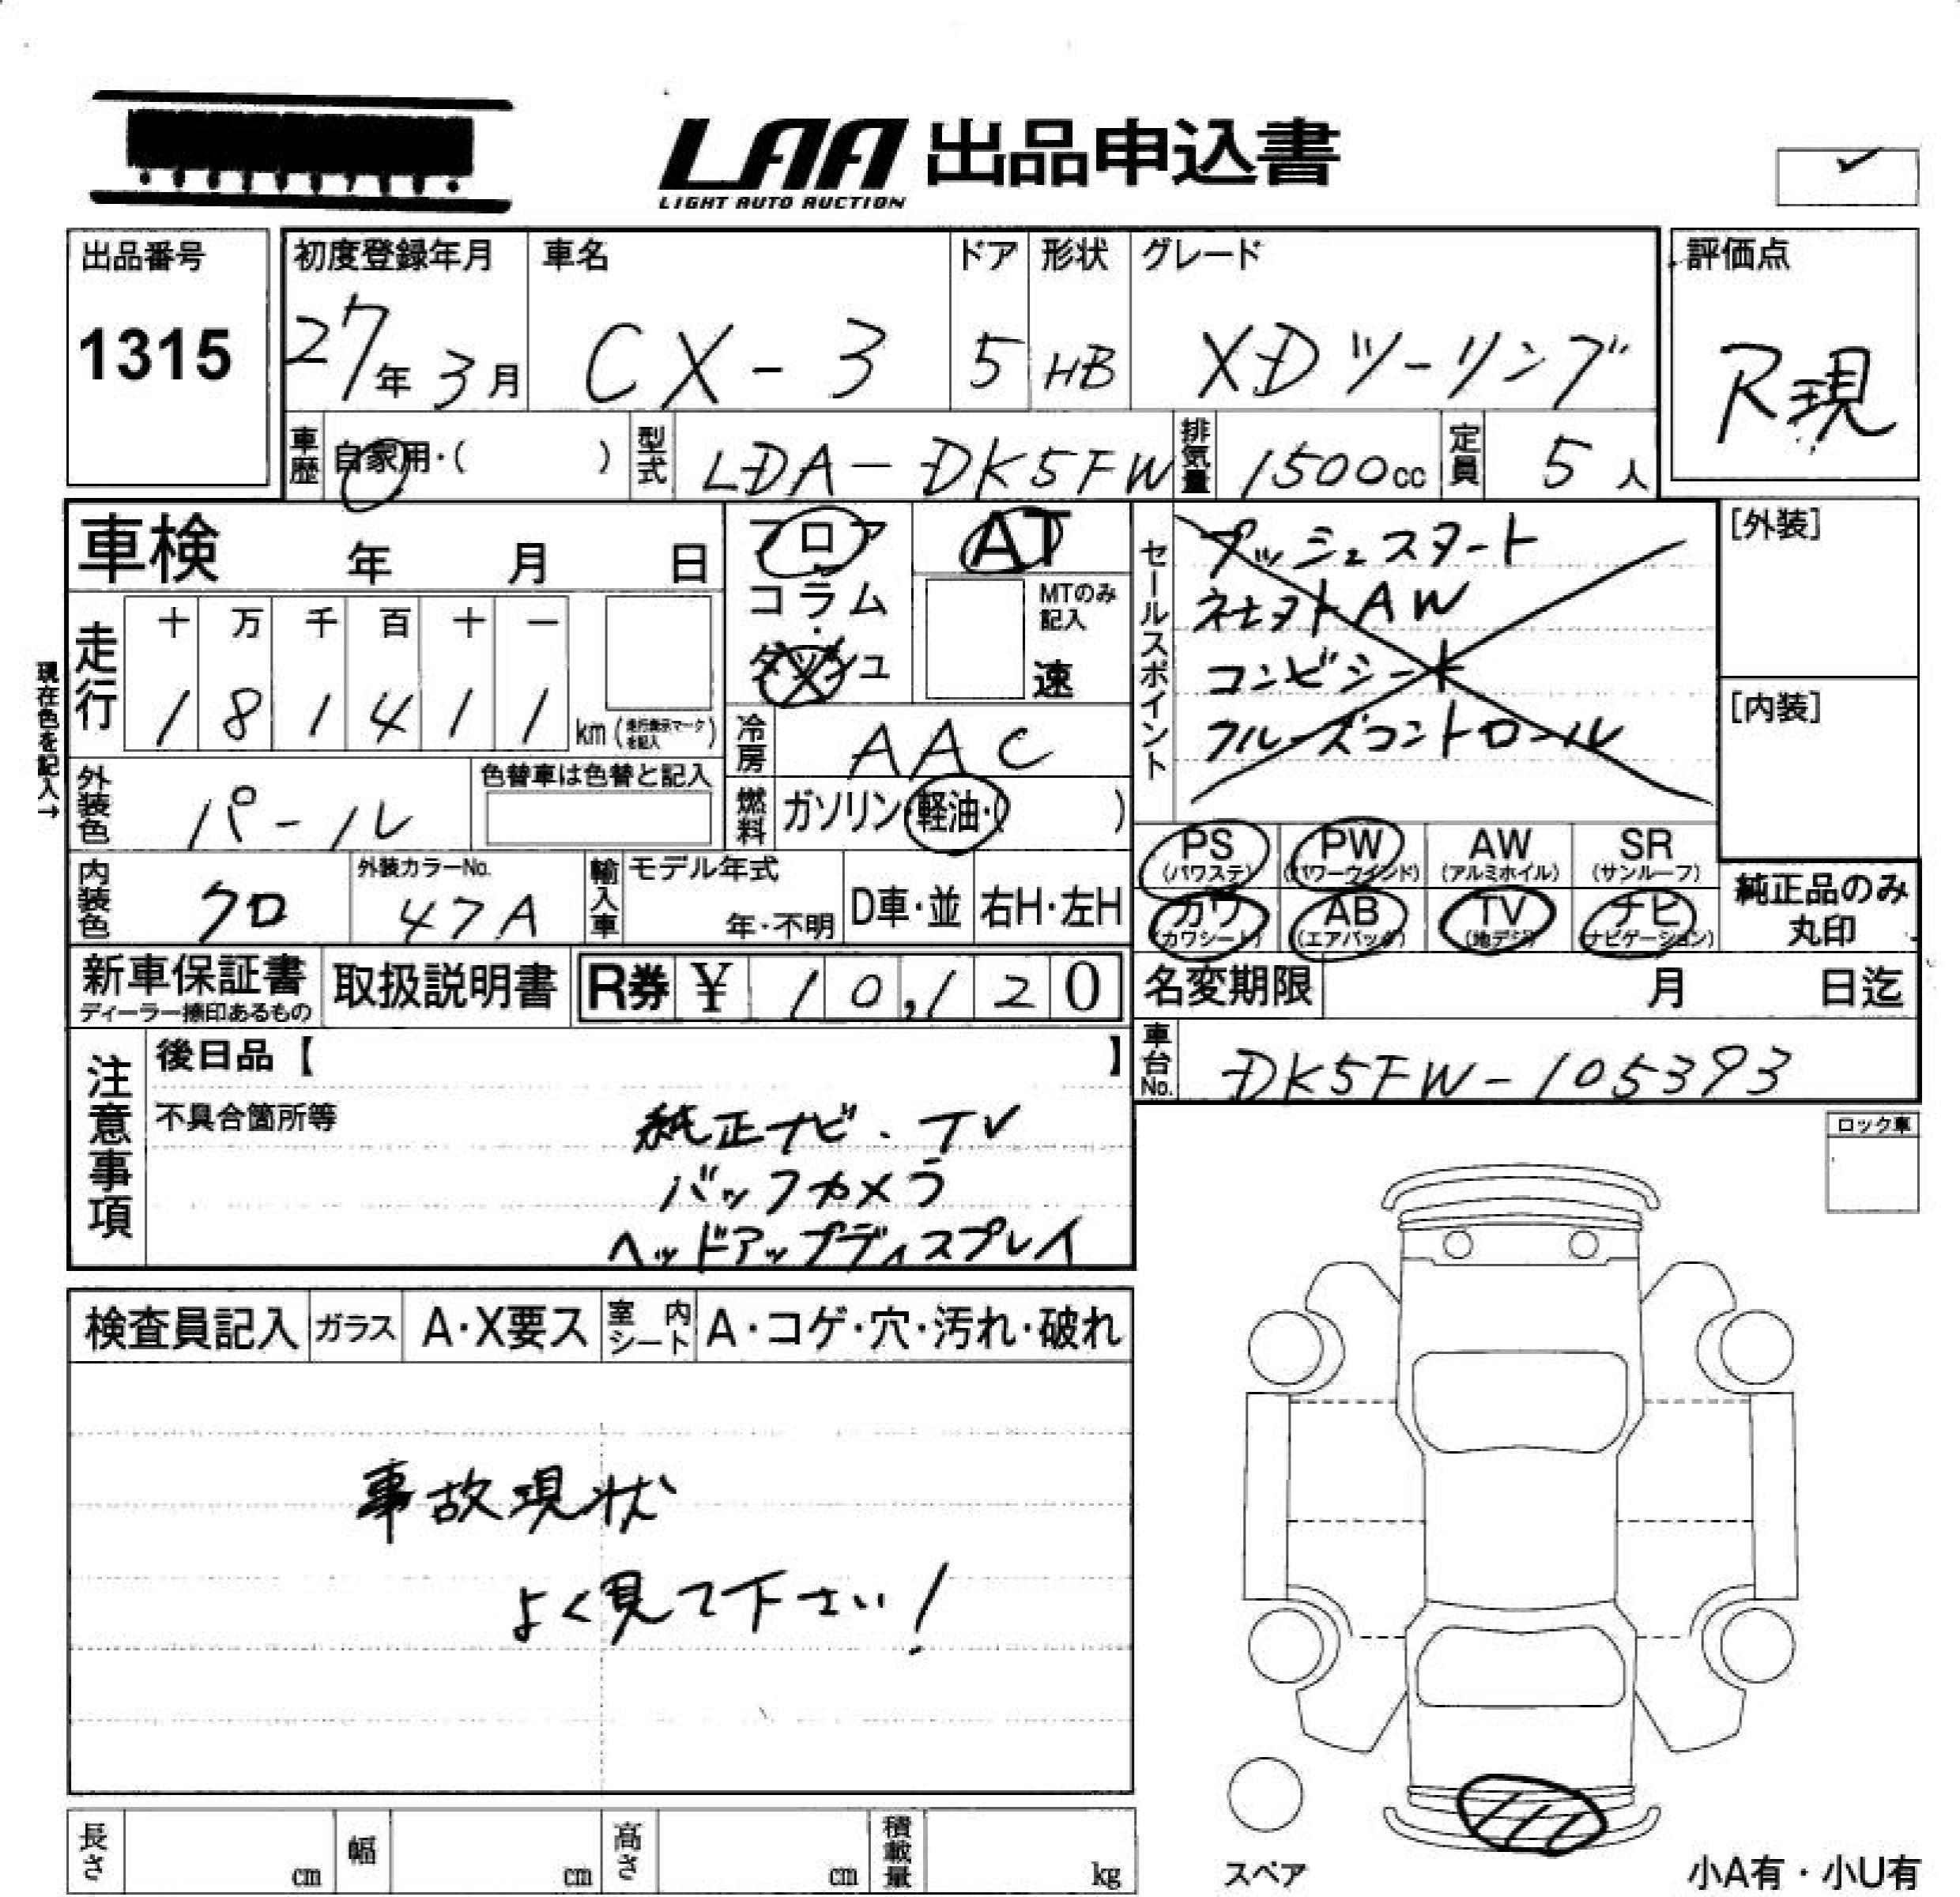 LAA 出品申込書
LIGHT AUTO AUCTION
出品番号
1315
初度登録年月
27年3月
車名
CX-3
ドア
5
形状
HB
グレード
XDツーリング
評価点
R現
車歴 自家用・( )
型式 LDA-DK5FW
排気量 1500cc
定員 5人
車検 年 月 日
フロア
コラム
・
ダッシュ
AT
MTのみ
記入
速
セールスポイント
プッシュスタート
社外AW
コンビシート
クルーズコントロール
[外装]
[内装]
現在色を記入→
走行
十 万 千 百 十 一
1 8 1 4 1 1 km (走行表示マークを記入)
冷房 AAC
外装色 パール
色替車は色替と記入
燃料 ガソリン・軽油・( )
PS (パワステ)
PW (パワーウインド)
AW (アルミホイル)
SR (サンルーフ)
内装色 クロ
外装カラーNo.
47A
輸入車
モデル年式
年・不明
D車・並
右H・左H
カワ (カワシート)
AB (エアバッグ)
TV (地デジ)
ナビ (ナビゲーション)
純正品のみ
丸印
新車保証書
ディーラー捺印あるもの
取扱説明書
R券 ¥ 10,120
名変期限 月 日迄
車台No. DK5FW-105393
注意事項
後日品【 】
不具合箇所等
純正ナビ・TV
バックカメラ
ヘッドアップディスプレイ
ロック車
検査員記入
ガラス A・X要ス
室内シート A・コゲ・穴・汚れ・破れ
事故現状
よく見て下さい!
長さ cm
幅 cm
高さ cm
積載量 kg
スペア
小A有・小U有